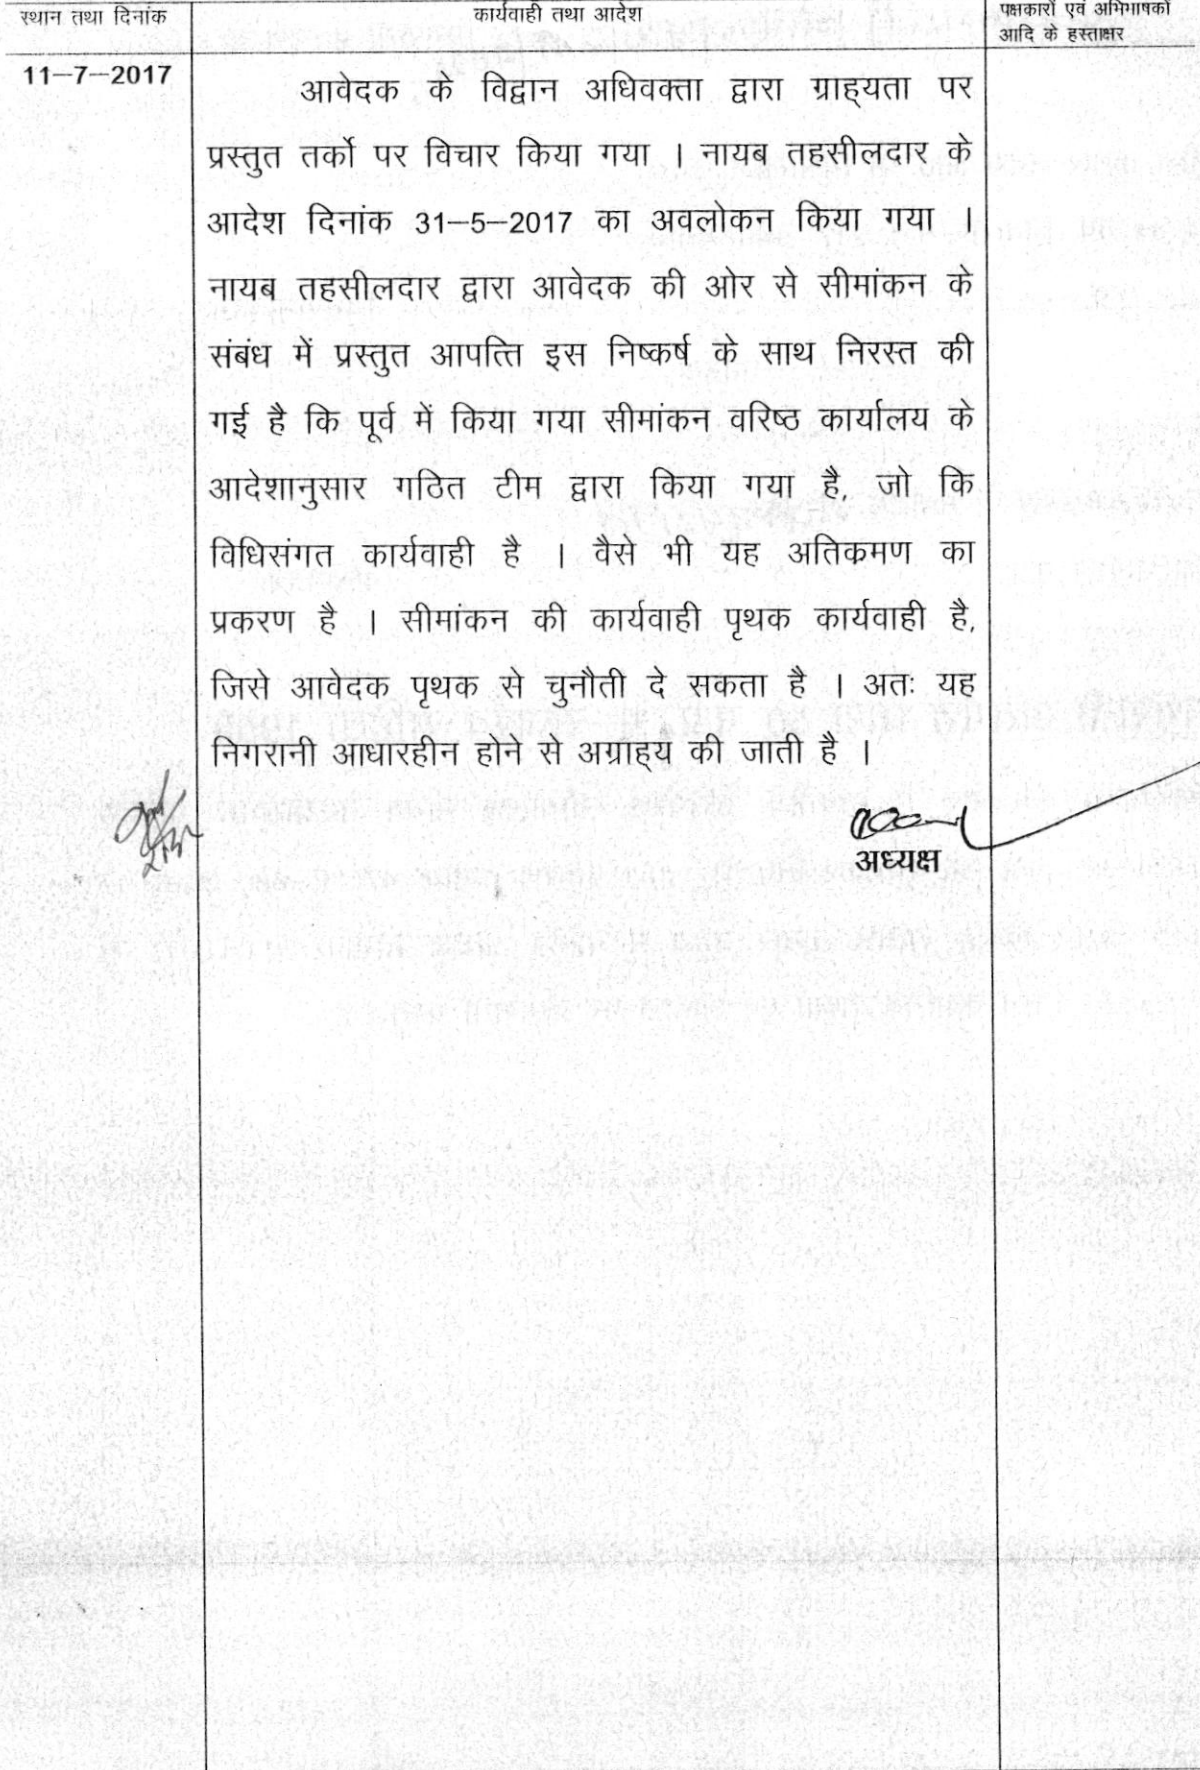 स्थान तथा दिनांक
कार्यवाही तथा आदेश
पक्षकारों एवं अभिभाषकों
आदि के हस्ताक्षर
11–7–2017
आवेदक के विद्वान अधिवक्ता द्वारा ग्राह्यता पर
प्रस्तुत तर्को पर विचार किया गया । नायब तहसीलदार के
आदेश दिनांक 31–5–2017 का अवलोकन किया गया ।
नायब तहसीलदार द्वारा आवेदक की ओर से सीमांकन के
संबंध में प्रस्तुत आपत्ति इस निष्कर्ष के साथ निरस्त की
गई है कि पूर्व में किया गया सीमांकन वरिष्ठ कार्यालय के
आदेशानुसार गठित टीम द्वारा किया गया है, जो कि
विधिसंगत कार्यवाही है । वैसे भी यह अतिकमण का
प्रकरण है । सीमांकन की कार्यवाही पृथक कार्यवाही है,
जिसे आवेदक पृथक से चुनौती दे सकता है । अतः यह
निगरानी आधारहीन होने से अग्राह्य की जाती है ।
अध्यक्ष